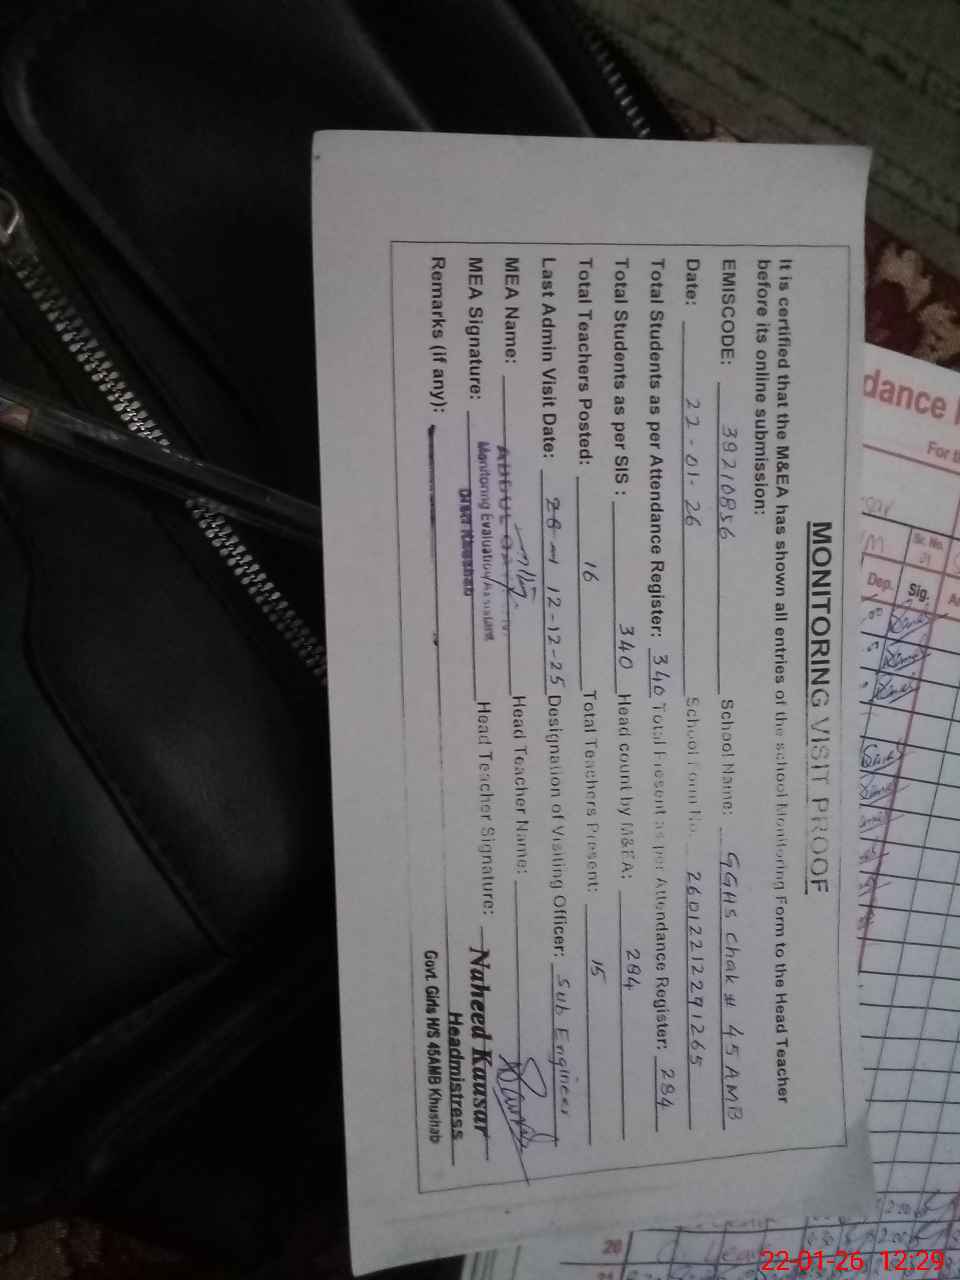 MONITORING VISIT PROOF
It is certified that the M&EA has shown all entries of the school Monitoring Form to the Head Teacher
before its online submission:
EMISCODE: 39210856 School Name: GGHS Chak # 45 AMB
Date: 22-01-26 School Form No. 260122122 91265
Total Students as per Attendance Register: 340 Total Present as per Attendance Register: 284
Total Students as per SIS : 340 Head count by M&EA: 284
Total Teachers Posted: 16 Total Teachers Present: 15
Last Admin Visit Date: 12-12-25 Designation of Visiting Officer: Sub Engineer
MEA Name: ABDUL Head Teacher Name:
Monitoring Evaluation Assistant
MEA Signature: Head Teacher Signature: Naheed Kausar
Distt Khushab
Headmistress
Remarks (if any): Govt. Girls H/S 45AMB Khushab
dance
For th
Sr. No.
01
Dep. Sig.
20
22-01-26 12:29